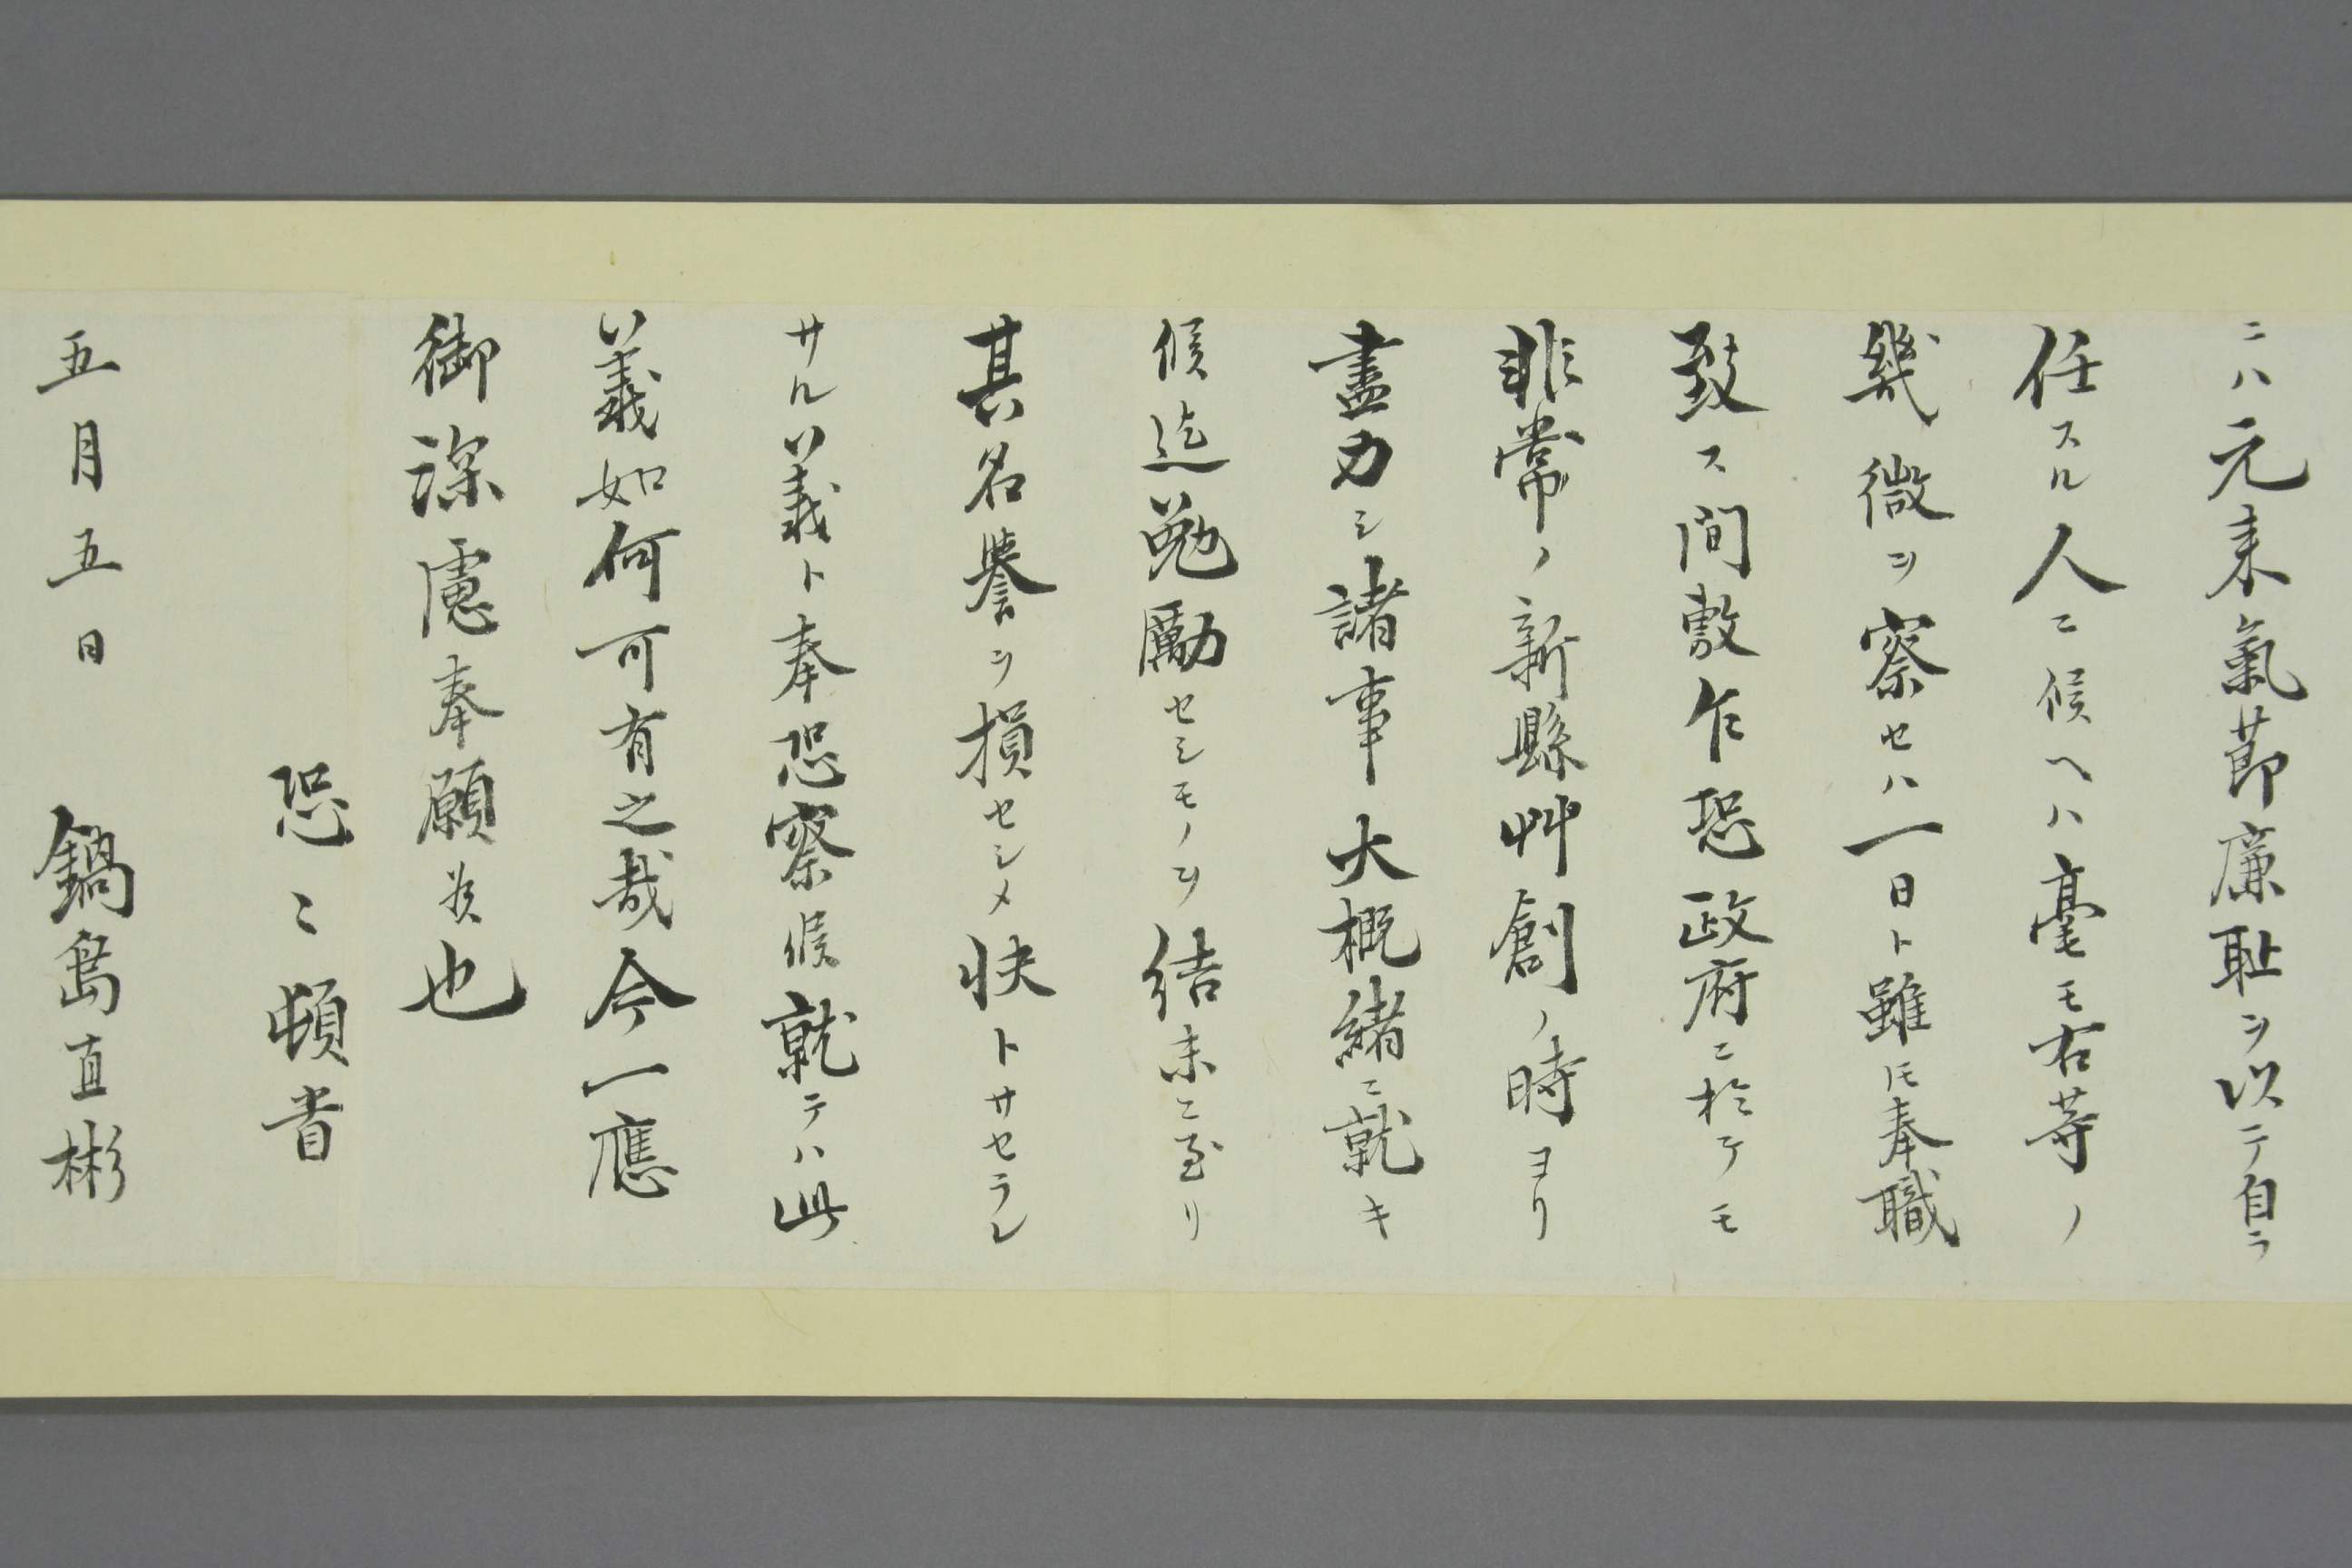 ニハ元来氣節廉耻ヲ以テ自ラ
任スル人ニ候ヘハ毫モ右等ノ
幾微ヲ察セハ一日ト雖ㇳモ奉職
致ス間敷乍恐政府ニ於テモ
非常ノ新縣艸創ノ時ヨリ
盡力シ諸事大概緒ニ就キ
候迄勉勵セシモノヲ結末ニ至リ
其名譽ヲ損セシメ快トサセラレ
サル义義ト奉恐察候就テハ此
义義如何可有之哉今一應
御深慮奉願候也
恐ミ頓首
五月五日 鍋島直彬